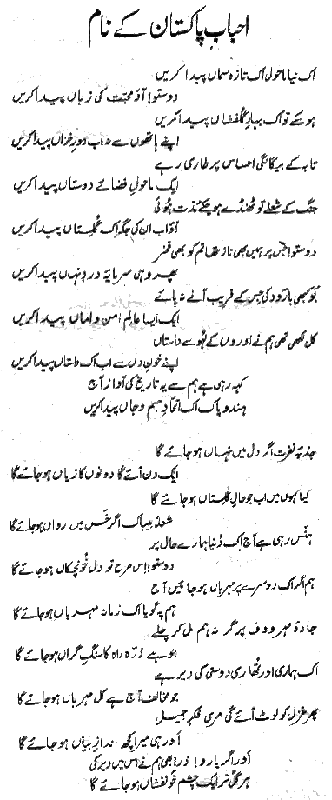 احبابِ پاکستان کے نام
اک نیا ماحول اک تازہ سماں پیدا کریں
دوستو! آؤ محبت کی زباں پیدا کریں
ہوسکے تو اک بہارِ گلفشاں پیدا کریں
اپنے ہاتھوں سے نہ اب دورِ خزاں پیدا کریں
تابہ کے بیگانگی احساس پر طاری رہے
ایک ماحولِ فضائے دوستاں پیدا کریں
جنگ کے شعلے تو ٹھنڈے ہوچکے مدت ہوئی
آؤ اب ان کی جگہ اک گلستاں پیدا کریں
دوستو! جس پر ہمیں بھی ناز تھا تم کو بھی فخر
پھر وہی سرمایۂ درد نہاں پیدا کریں
بُو کبھی بارود کی جس کے قریب آنے نہ پائے
ایک ایسا عالمِ امن و اماں پیدا کریں
کل لکھی تھی ہم نے اوروں کے لہو سے داستاں
اپنے خونِ دل سے اب اک داستاں پیدا کریں
کہہ رہی ہے ہم سے یہ تاریخ کی آواز آج
ہند و پاک اک اتحادِ جسم و جاں پیدا کریں
جذبۂ نفرت اگر دل میں نہاں ہوجائے گا
ایک دن آئے گا دونوں کا زیاں ہوجائے گا
کیا کہوں میں اب جو حالِ گلستاں ہوجائے گا
شعلۂ بیباک اگر خس میں رواں ہوجائے گا
ہنس رہی ہے آج اک دُنیا ہمارے حال پر
دوستو! اس طرح تو دل خونچکاں ہوجائے گا
ہم اگر اک دوسرے پر مہرباں ہوجائیں آج
ہم پہ گویا اک زمانہ مہرباں ہوجائے گا
جادۂ مہر و وفا پر گر نہ ہم مل کر چلے
ہے ذرہ راہ کا سنگِ گراں ہوجائے گا
اک ہماری اور تمہاری دوستی کی دیر ہے
جو مخالف آج ہے کل مہرباں ہوجائے گا
پھر غزل کو لوٹ آئے گی مری فکرِ جمیل!
اور ہی میرا کچھ اندازِ بیاں ہوجائے گا
اور اگر یارو! ذرا بھی ہم نے اس میں دیر کی
ہر گلی ہر ایک چشمِ خونفشاں ہوجائے گا